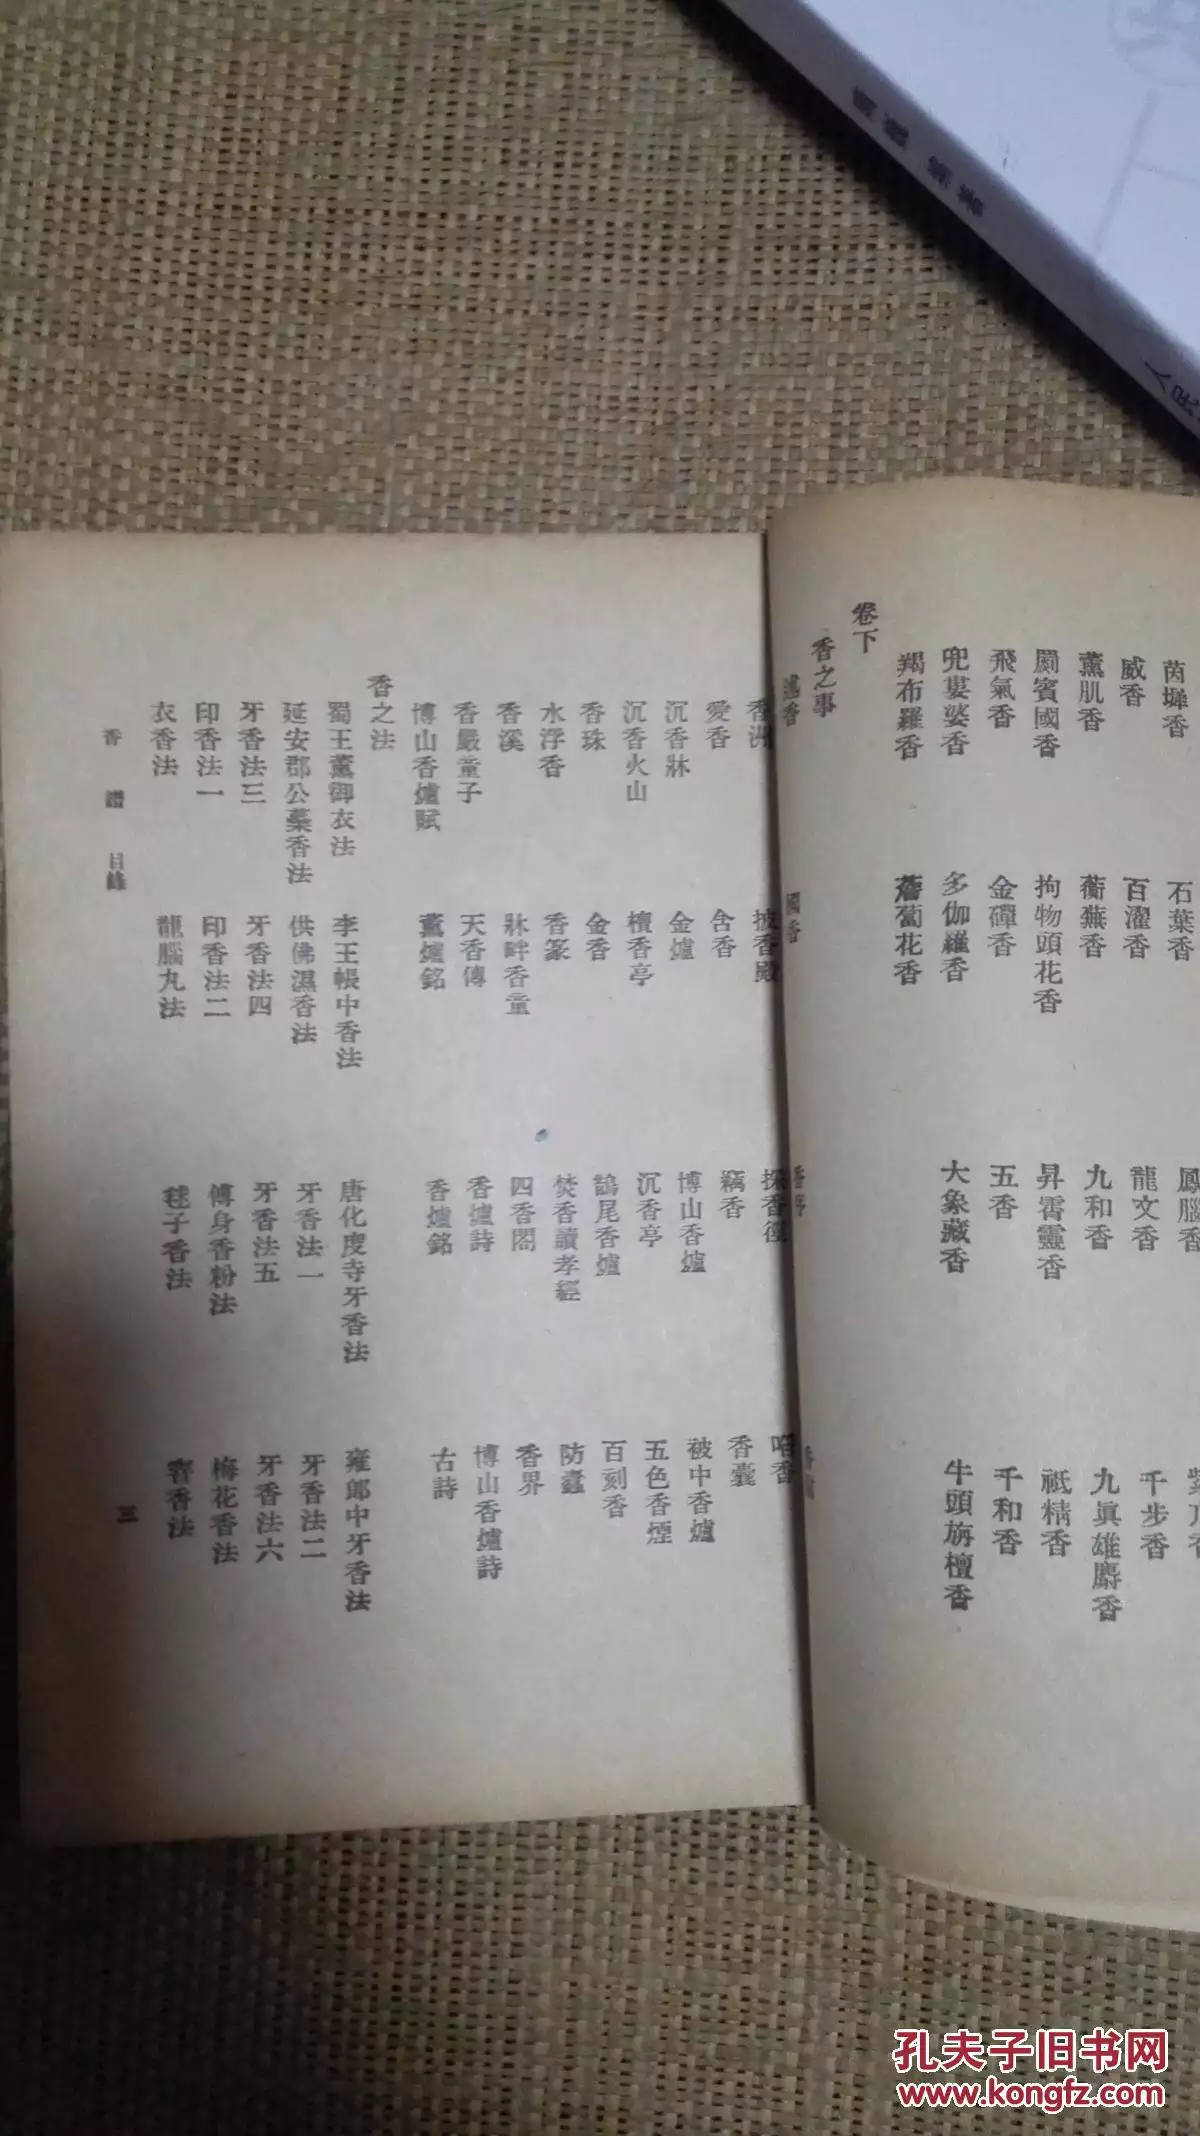 茵墀香　石葉香　鳳腦香
威香　百濯香　龍文香　千步香
薰肌香　蘅蕪香　九和香　九真雄麝香
罽賓國香　拘物頭花香　昇霄靈香　祗精香
飛氣香　金磾香　五香　千和香
兜婁婆香　多伽羅香　大象藏香　牛頭旃檀香
羯布羅香　薝蔔花香
卷下
香之事
述香　國香　香亭
香洲　披香殿　採香徑　啗香
愛香　含香　竊香　香囊
沉香牀　金爐　博山香爐　被中香爐
沉香火山　檀香亭　沉香亭　五色香煙
香珠　金香　鵲尾香爐　百刻香
水浮香　香篆　焚香讀孝經　防蠹
香溪　牀畔香童　四香閣　香界
香嚴童子　天香傳　香爐詩　博山香爐詩
博山香爐賦　薰爐銘　香爐銘　古詩
香之法
蜀王薰御衣法　李王帳中香法　唐化度寺牙香法　雍郎中牙香法
延安郡公蘂香法　供佛濕香法　牙香法一　牙香法二
牙香法三　牙香法四　牙香法五　牙香法六
印香法一　印香法二　傅身香粉法　梅花香法
衣香法　龍腦九法　毬子香法　窨香法
香譜　目錄　三
人民
孔夫子旧书网
www.kongfz.com